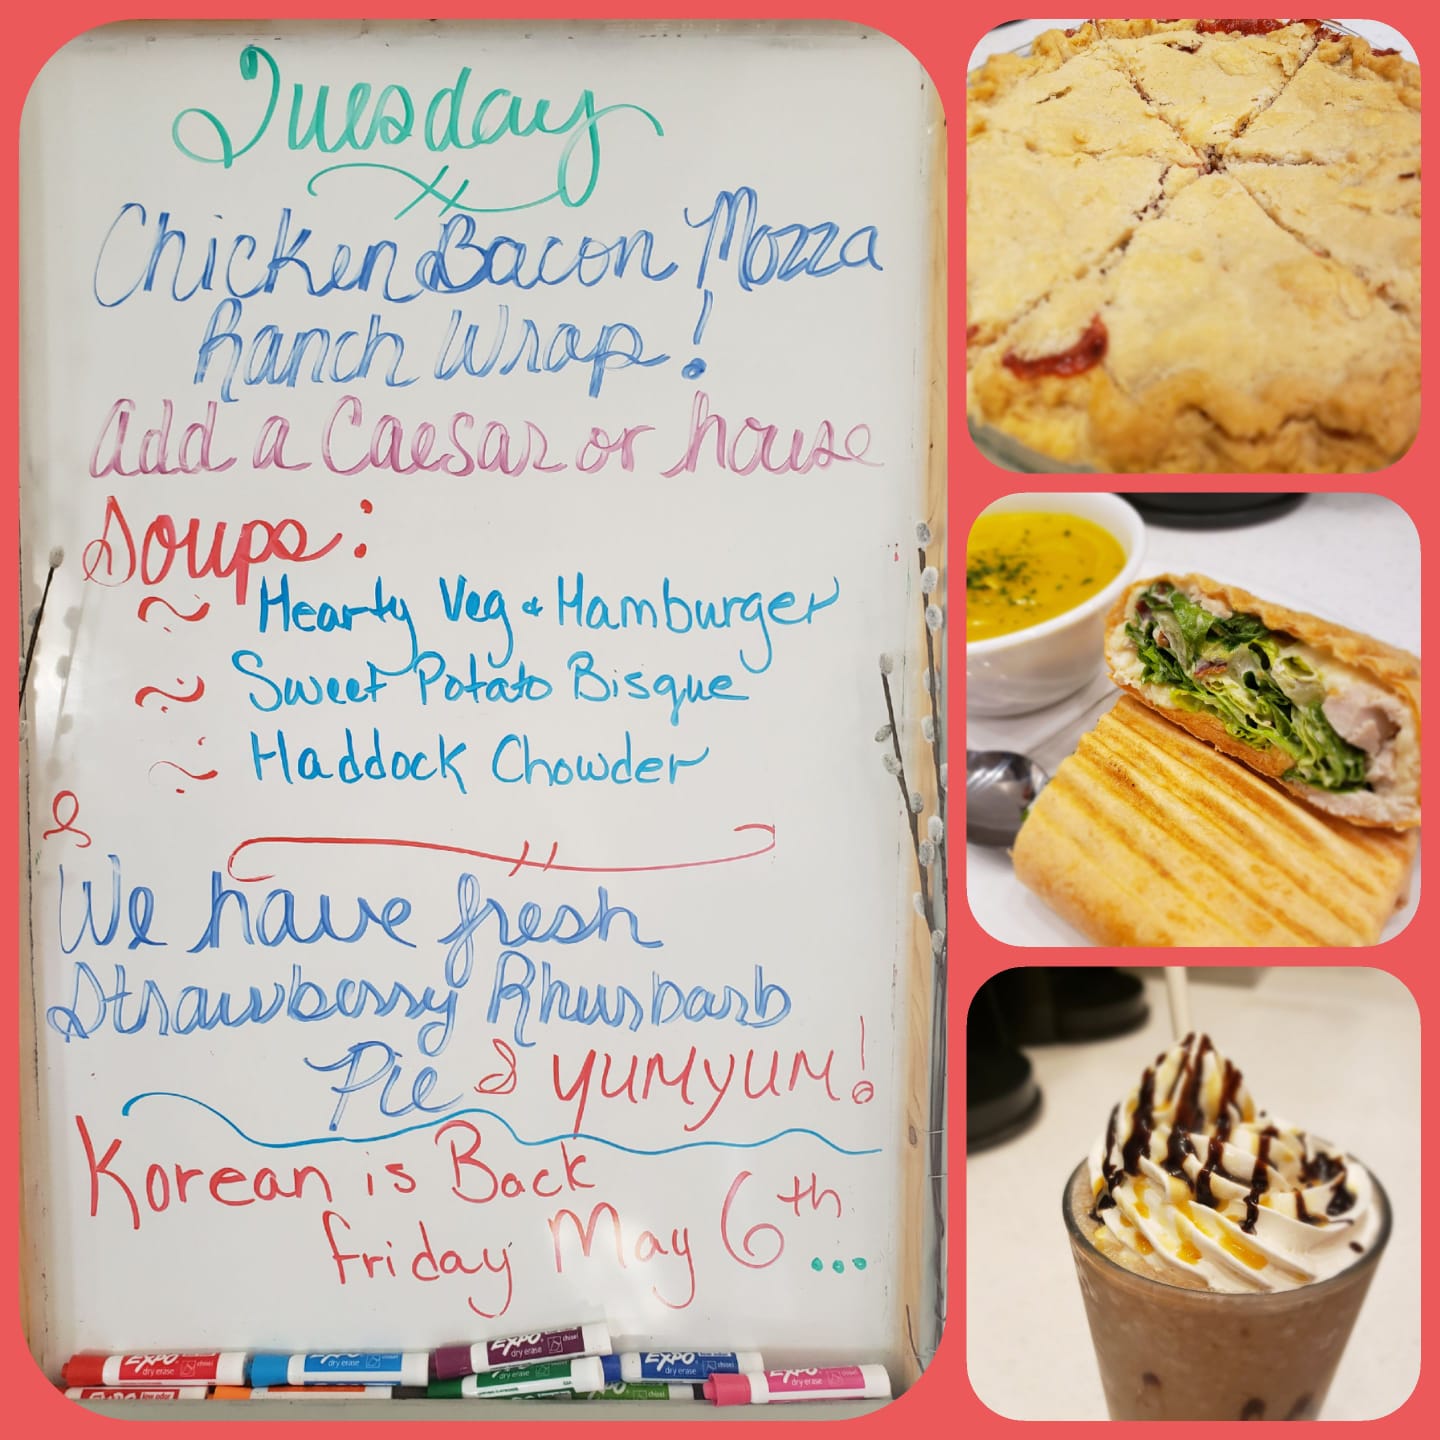 Tuesday
Chicken Bacon Mozza
Ranch Wrap!
Add a Caesar or house
Soups:
~ Hearty Veg & Hamburger
~ Sweet Potato Bisque
~ Haddock Chowder
We have fresh
Strawberry Rhurbarb
Pie YUMYUM!
Korean is Back
friday May 6th...
EXPO dry erase chisel
EXPO dry erase chisel
EXPO dry erase chisel
EXPO dry erase
EXPO dry erase
EXPO low odor